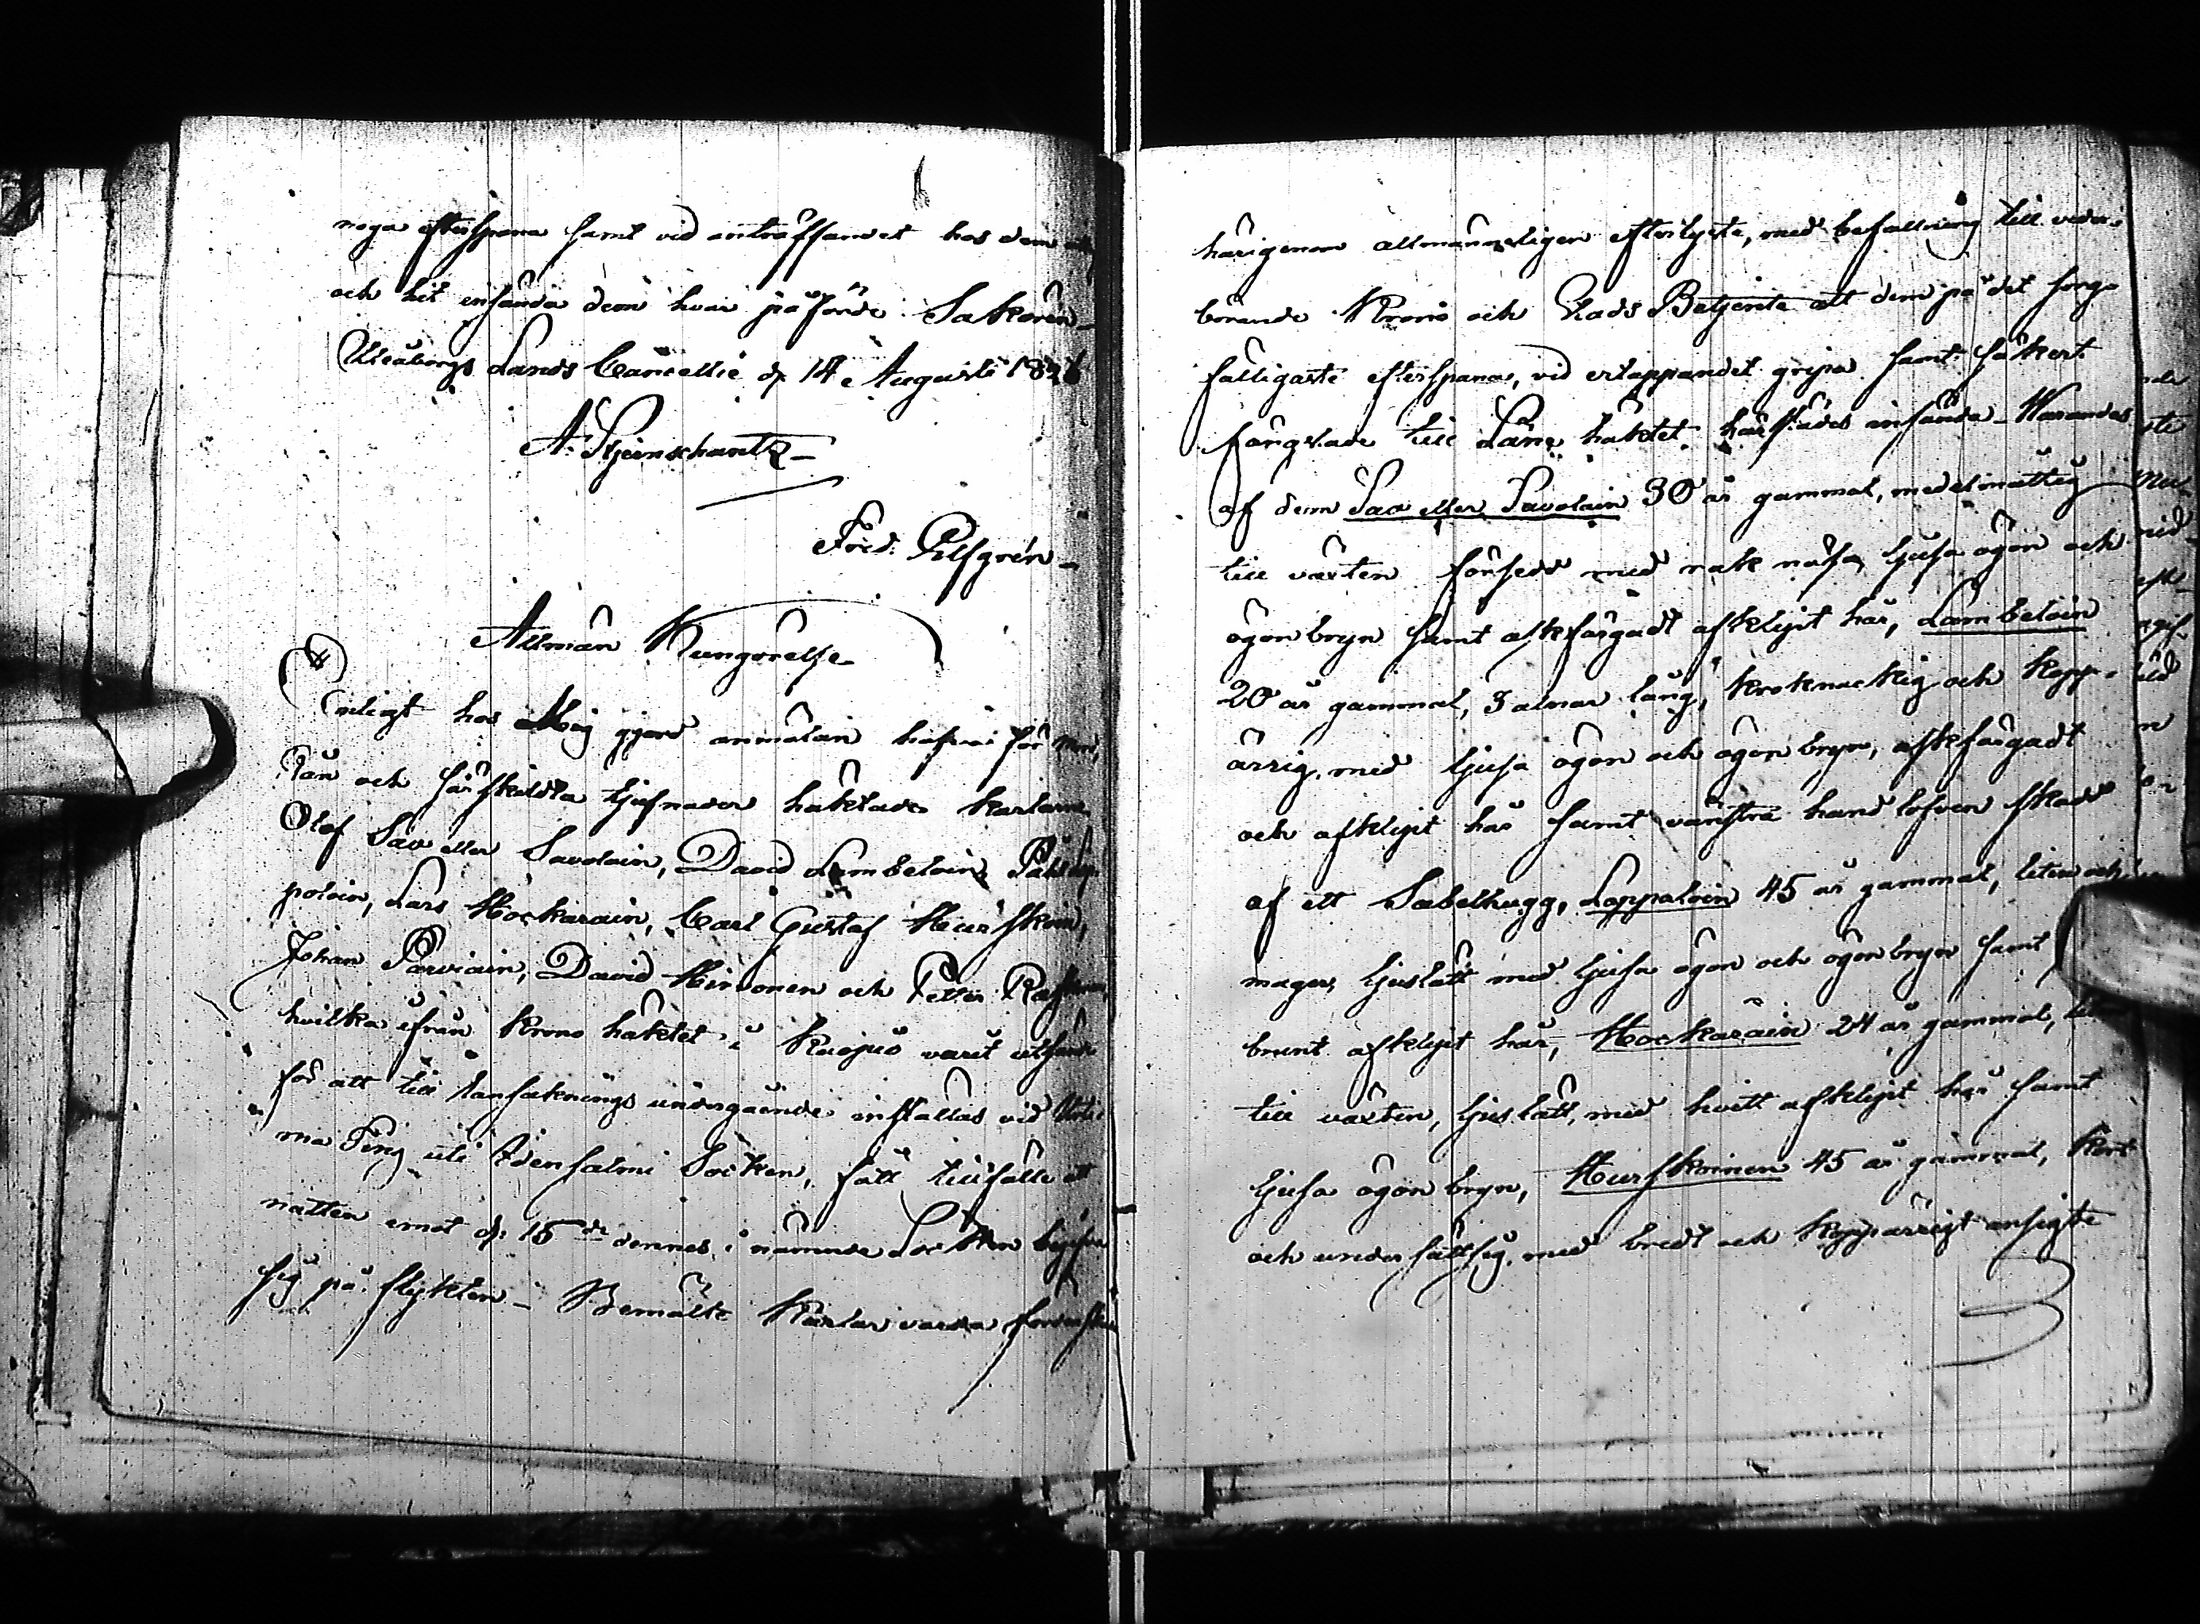 noga efterspana samt vid anträffandet hos dem
och hit insända dem hvar påförde Saköron
Uleåborgs Lands Cancellie d. 14 Augusti 1826
A. Stjernschantz
Fred. Elfgrén
Allmän Kungörelse
Enligt hos Mig gjord anmälan hafva för
Rån och särskildta tjufnader häktade karlarne
Olof Sav eller Savolain, David Lambeloin, Påhl Lop-
poloin, Lars Hockarain, Carl Gustaf Hurskain,
Johan Parviain, David Hirvonen och Petter
hvilka ifrån Krono häktet i Kuopio varit utsände
för att till ransaknings undergående inställas vid Urti-
ma Ting uti Idensalmi Socken, fått tillfälle att
natten emot d. 15de dennes i nämnde Socken begifva
sig på flykten – Bemälte Karlar varda
härigenom allmänneligen efterlyste, med befallning till veder-
börande Krono och Stads Betjente att dem på det sorg-
fälligaste efterspana, vid ertappandet gripa samt säkert
fängslade till Läne häktet härstädes insända – Warandes
af dem Sav eller Savolain 30 år gammal, medelmåttig
till växten försedd med rak näsa, ljusa ögon och
ögonbryn samt askfärgadt afklipt hår, Lambeloin
20 år gammal, 3 alnar lång, kroknackig och kopp-
ärrig, med ljusa ögon och ögonbryn, askfärgadt
och afklipt hår samt vänstra hand lofven skadd
af ett Sabelhugg, Loppoloin 45 år gammal, liten och
mager, ljuslätt med ljusa ögon och ögonbryn samt
brunt afklipt hår, Hockarain 24 år gammal, liten
till växten, ljuslätt, med hvitt afklipt hår samt
ljusa ögonbryn, Hurskainen 45 år gammal, kort
och undersättsig, med bredt och koppärrigt ansigte